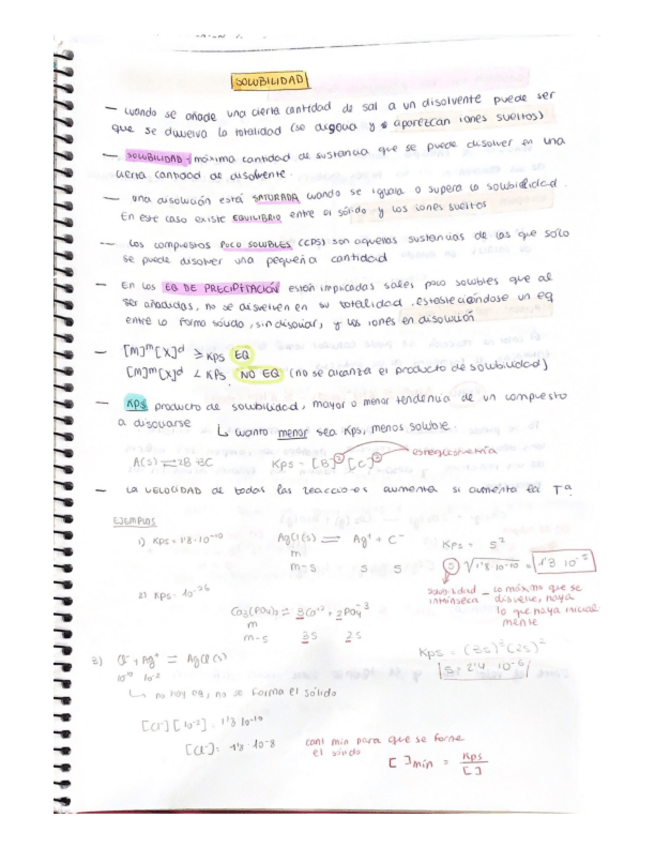 SOLUBILIDAD
— cuando se añade una cierta cantidad de sal a un disolvente puede ser
que se disuelva la totalidad (se disocia y aparezcan iones sueltos)
— SOLUBILIDAD: máxima cantidad de sustancia que se puede disolver en una
cierta cantidad de disolvente.
— una disolución está SATURADA cuando se iguala o supera la solubilidad.
En este caso existe EQUILIBRIO entre el sólido y los iones sueltos
— Los compuestos POCO SOLUBLES (CPS) son aquellas sustancias de las que solo
se puede disolver una pequeña cantidad
— En los EQ DE PRECIPITACIÓN están implicadas sales poco solubles que al
ser añadidas, no se disuelven en su totalidad, estableciéndose un eq
entre la forma sólida, sin disociar, y los iones en disolución
— [M]ᵐ[X]ᵈ ≥ KPS EQ
[M]ᵐ[X]ᵈ < KPS NO EQ (no se alcanza el producto de solubilidad)
— KPS producto de solubilidad, mayor o menor tendencia de un compuesto
a disociarse ↳ cuanto menor sea Kps, menos soluble
estequiometría
A(s) ⇌ 2B 3C Kps = [B]² [C]³
— LA VELOCIDAD de todas las reacciones aumenta si aumenta la Tª
EJEMPLOS
1) Kps = 1'8·10⁻¹⁰ AgCl(s) ⇌ Ag⁺ + C⁻ Kps = S²
m
m-s s s S √1'8·10⁻¹⁰ = 1'3 10⁻⁵
solubilidad intrínseca — lo máximo que se
disuelve, haya
lo que haya inicial
mente
2) Kps = 10⁻²⁵
Co₃(PO₄)₂ ⇌ 3Co⁺² + 2PO₄⁻³
m
m-s 3s 2s
Kps = (3s)³(2s)²
S = 2'4 10⁻⁶
3) Cl⁻ + Ag⁺ ⇌ AgCl(s)
10⁻¹⁰ 10⁻²
↳ no hay eq, no se forma el sólido
[Cl⁻][10⁻²] = 1'8 10⁻¹⁰
[Cl⁻] = 1'8·10⁻⁸
cant min para que se forme
el sólido
[ ]mín = Kps / [ ]